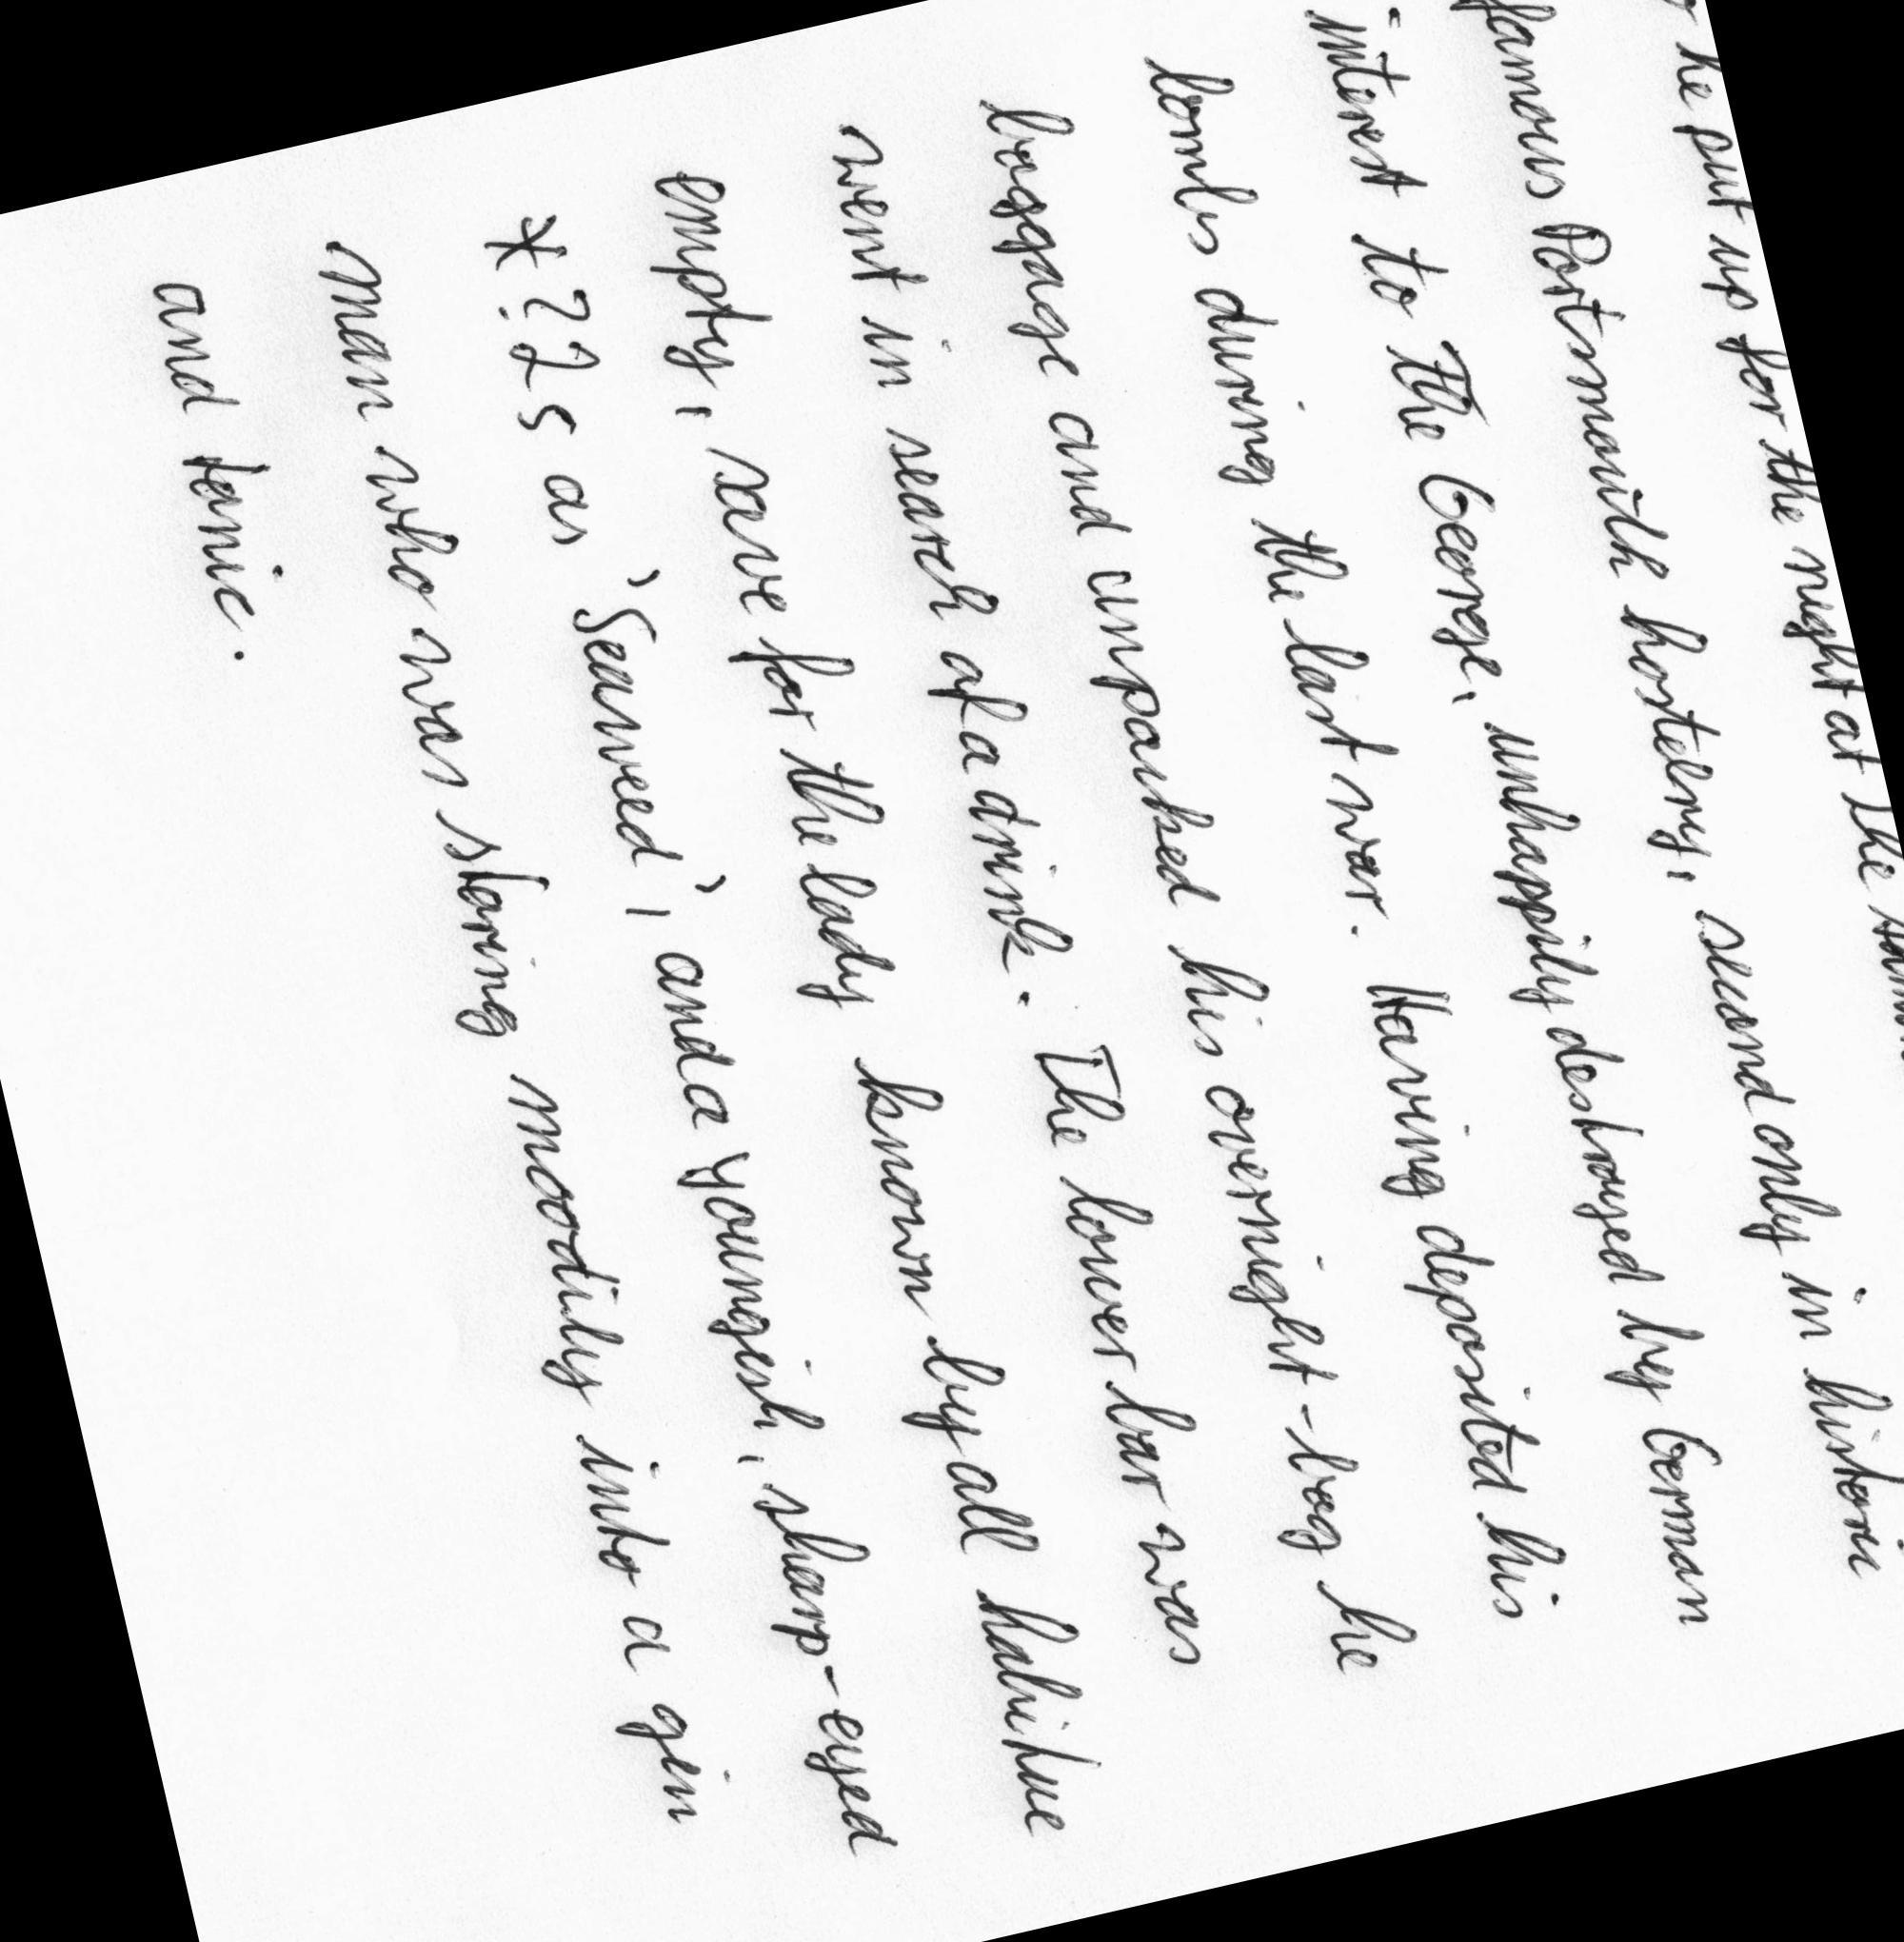 he put up for the night at The
famous Portsmouth hostelry, second only in historic
interest to The George, unhappily destroyed by German
bombs during the last war. Having deposited his
baggage and unpacked his overnight-bag he
went in search of a drink. The lower bar was
empty, save for the lady known by all habitue
*??s as 'Seaweed', and a youngish, sharp-eyed
man who was staring moodily into a gin
and tonic.